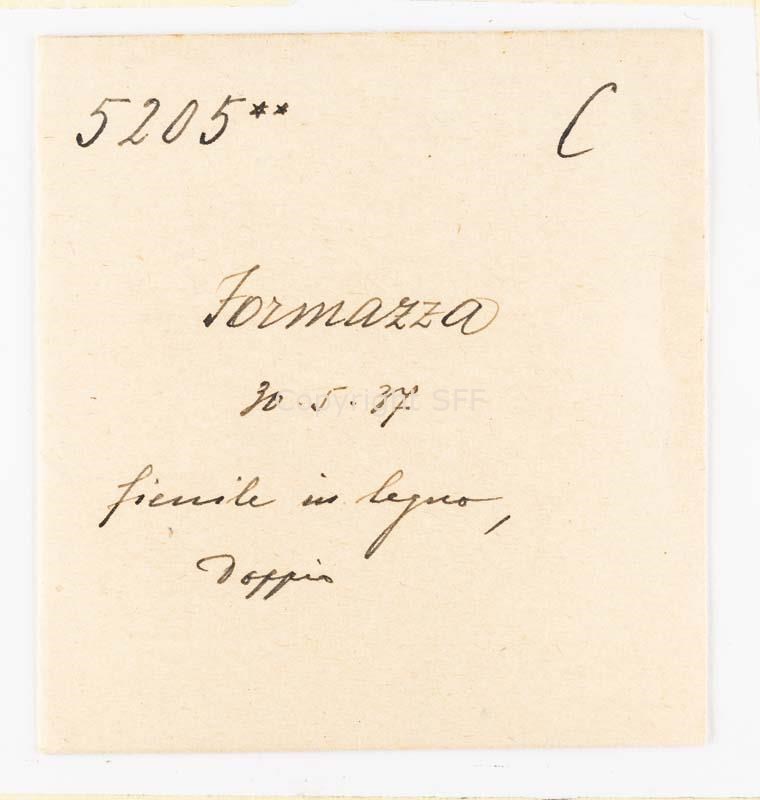 5205** C
Formazza
30.5.37.
Copyright SFF
fienile in legno,
Doppio